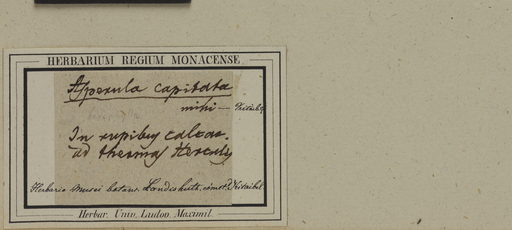 HERBARIUM REGIUM MONACENSE.
Asperula capitata
mihi — Kitaibel
In rupibus calcar.
ad thermas Herculis
Herbario Musei botan. Landishuth. comm. Kitaibel.
Herbar. Univ. Ludov. Maximil.